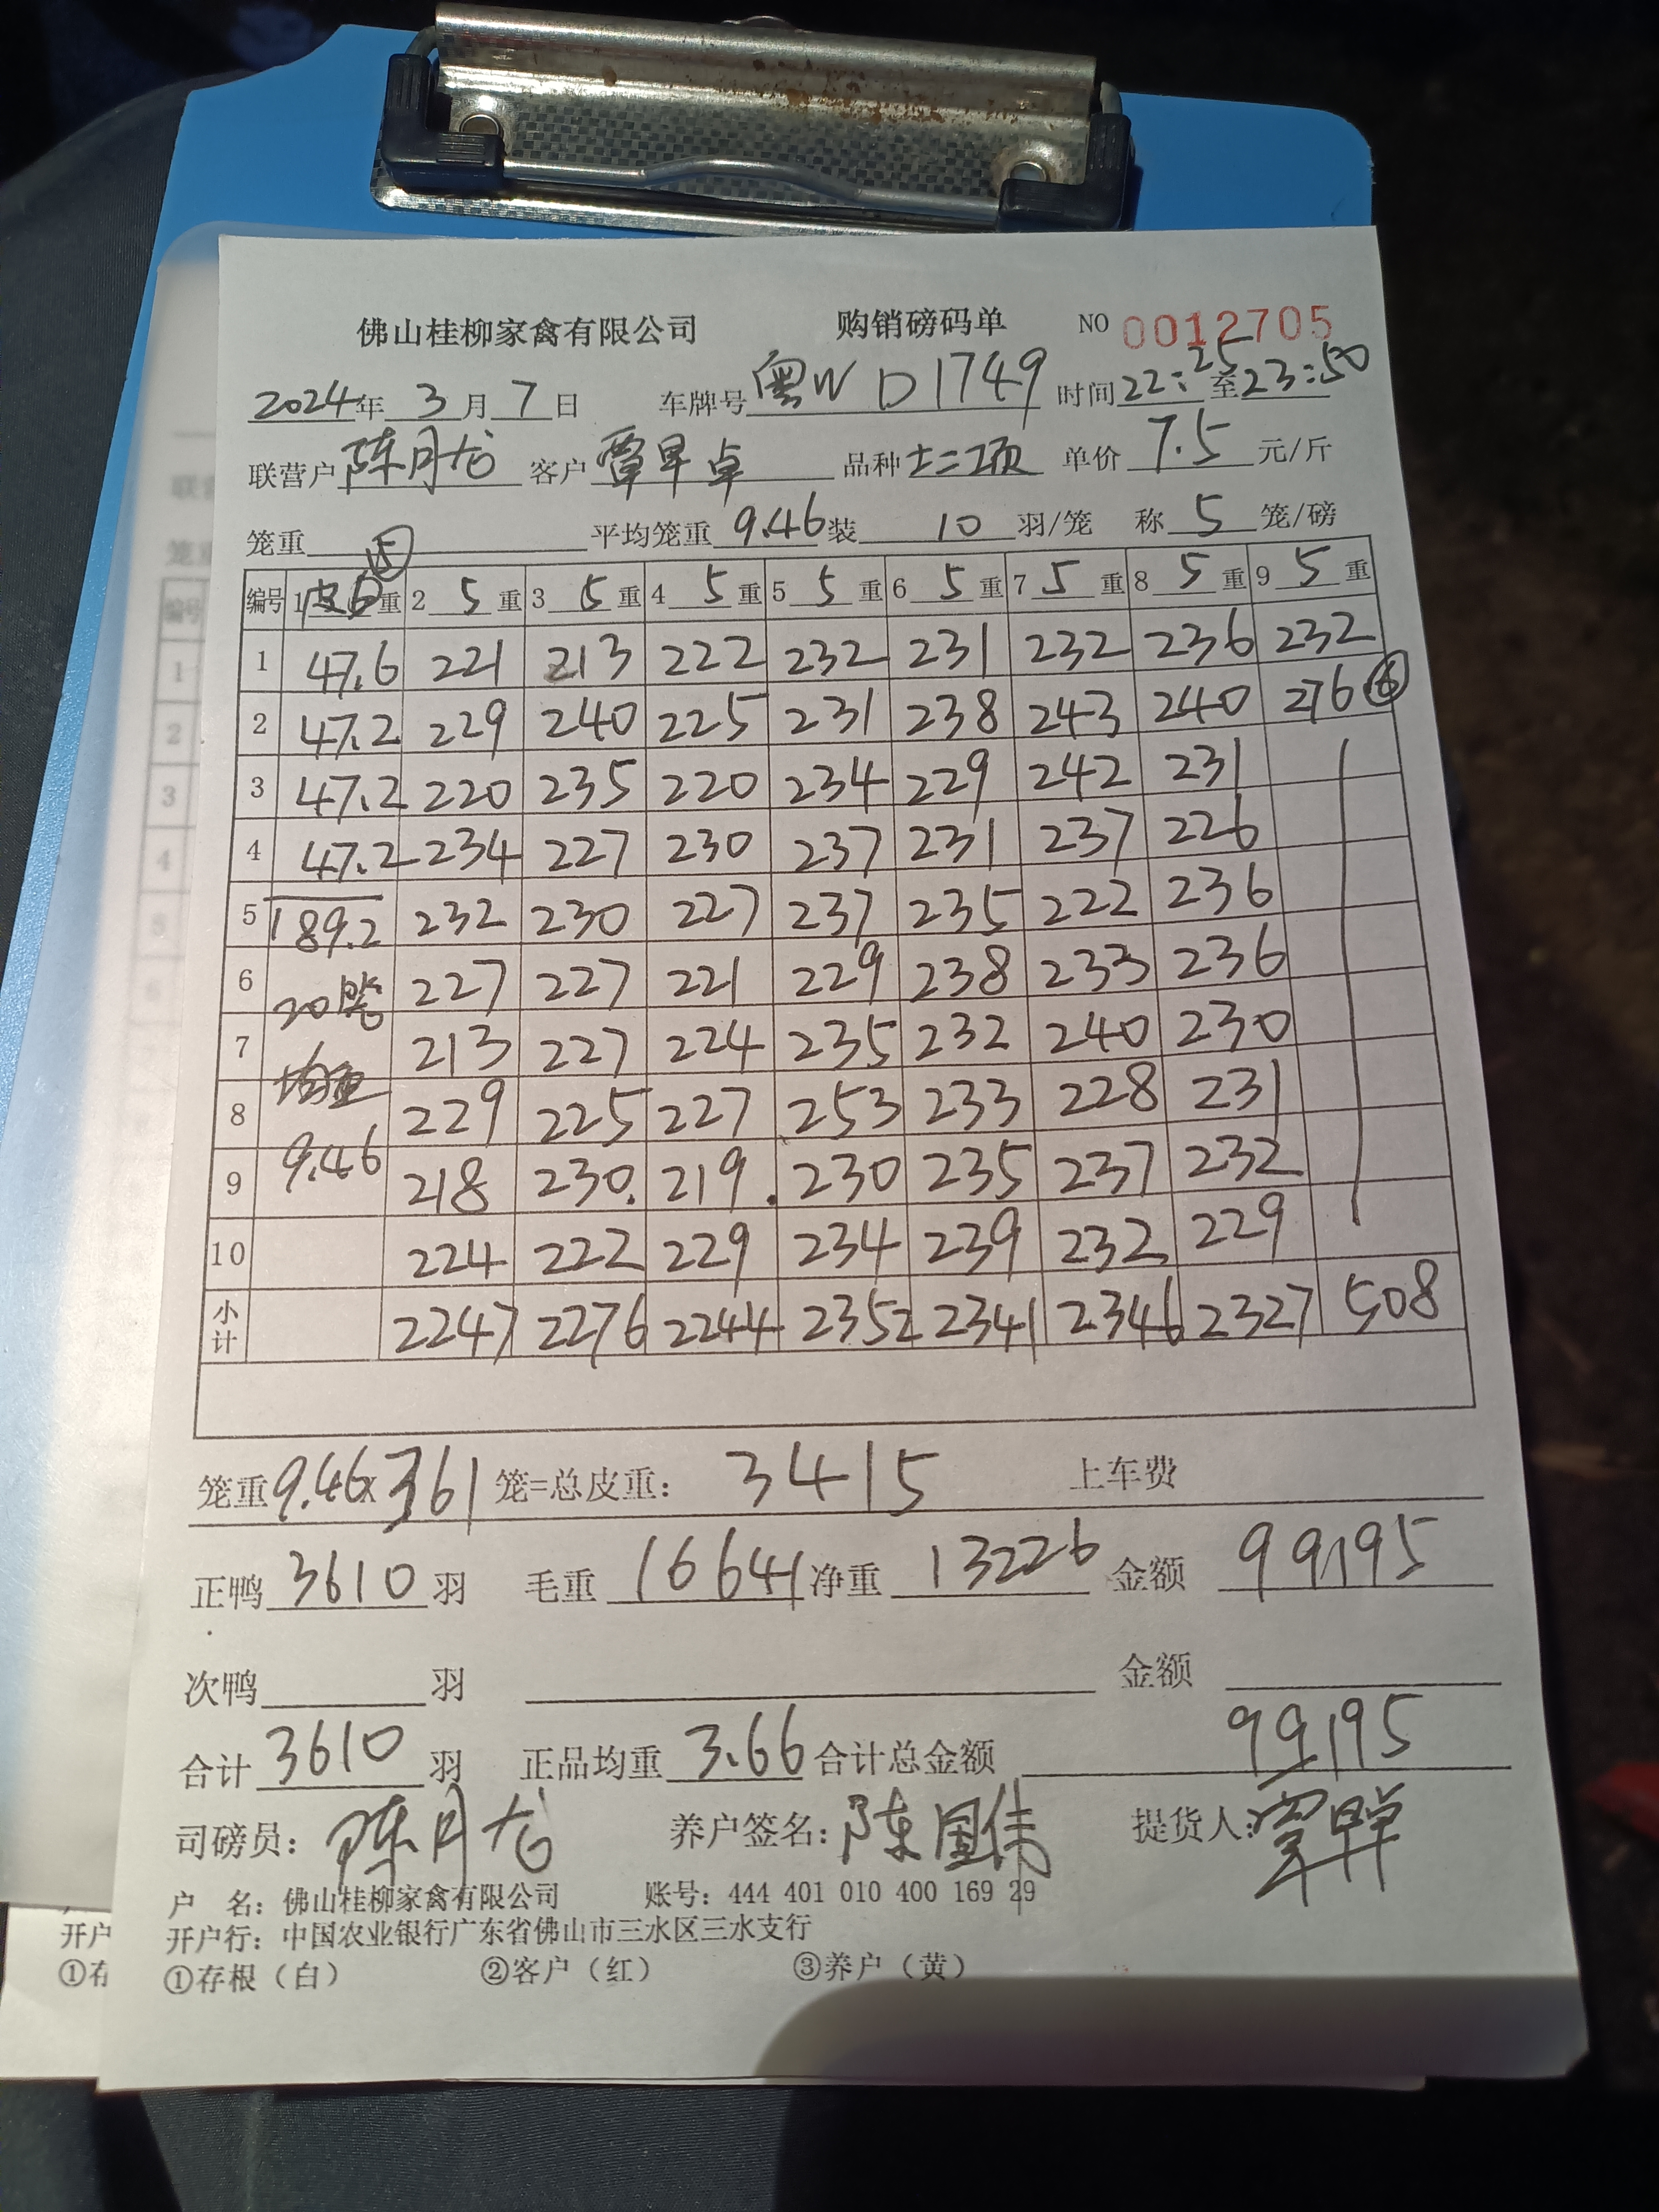 佛山桂柳家禽有限公司 购销磅码单 NO 0012705
2024年 3 月 7 日 车牌号 粤W D1749 时间 22:25 至 23:50
联营户 陈月龙 客户 覃早卓 品种 单价 7.5 元/斤
笼重 平均笼重 9.46 装 10 羽/笼 称 5 笼/磅
编号 1 皮 重 2 5 重 3 5 重 4 5 重 5 5 重 6 5 重 7 5 重 8 5 重 9 5 重
1 47.6 221 213 222 232 231 232 236 232
2 47.2 229 240 225 231 238 243 240 276 ⑥
3 47.2 220 235 220 234 229 242 231
4 47.2 234 227 230 237 231 237 226
5 189.2 232 230 227 237 235 222 236
6 20笼 227 227 221 229 238 233 236
7 均重 213 227 224 235 232 240 230
8 229 225 227 253 233 228 231
9 9.46 218 230. 219. 230 235 237 232
10 224 222 229 234 239 232 229
小计 2247 2276 2244 2352 2341 2346 2327 508
笼重 9.46x361 笼=总皮重: 3415 上车费
正鸭 3610 羽 毛重 16641 净重 13226 金额 99195
次鸭 羽 金额
合计 3610 羽 正品均重 3.66 合计总金额 99195
司磅员: 陈月龙 养户签名: 陈国伟 提货人:
户 名: 佛山桂柳家禽有限公司 账号: 444 401 010 400 169 29
开户行: 中国农业银行广东省佛山市三水区三水支行
①存根(白) ②客户(红) ③养户(黄)